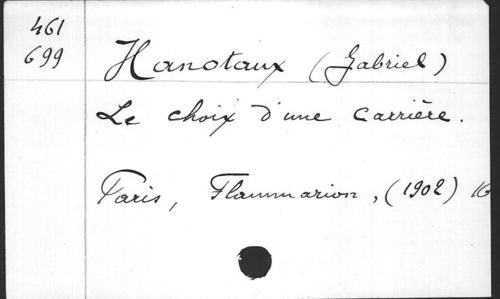 461
699
Hanotaux (Gabriel)
Le choix d'une carrière.
Paris, Flammarion, (1902) 16